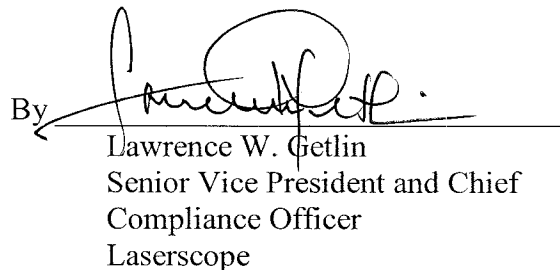 By
Lawrence W. Getlin
Senior Vice President and Chief
Compliance Officer
Laserscope